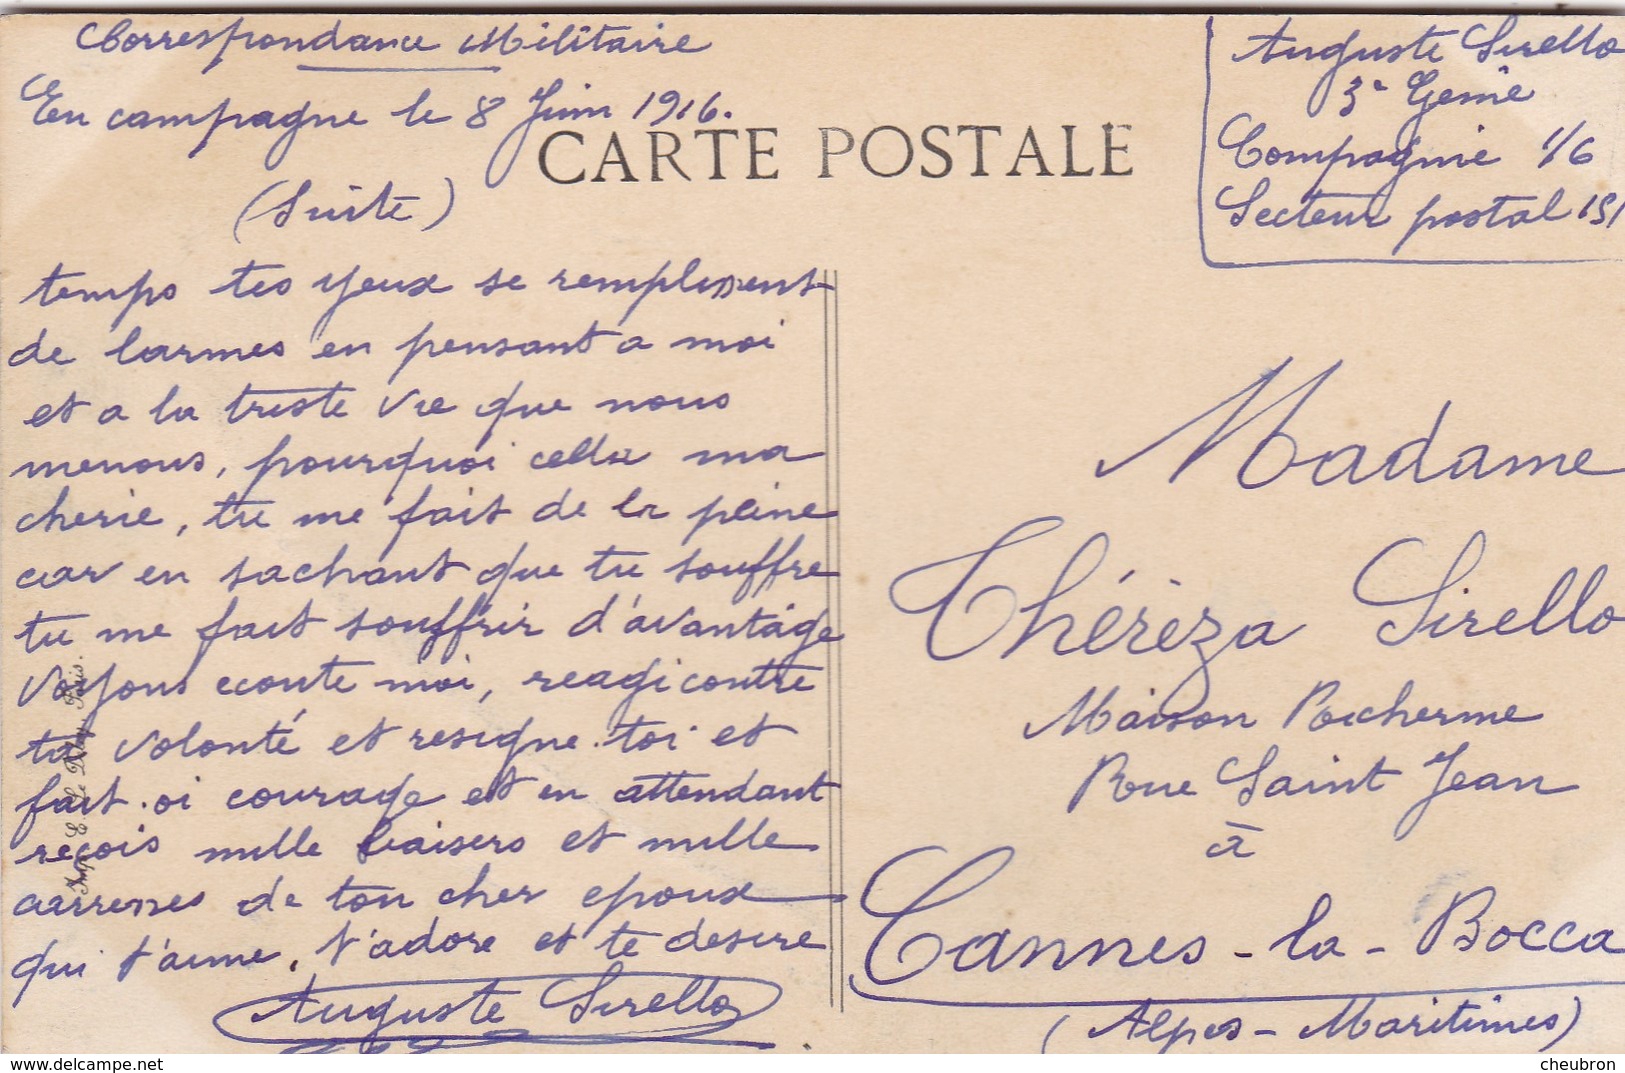 Correspondance Militaire
En campagne le 8 Juin 1916.
CARTE POSTALE
(Suite)
temps tes yeux se remplissent
de larmes en pensant a moi
et a la triste vie que nous
menons, pourquoi cella ma
cherie, tu me fait de la peine
car en sachant que tu souffre
tu me fait souffrir d'avantage
voyons ecoute moi, reagi contre
ta volonté et resigne.toi et
fait.oi courage et en attendant
reçois mille baisers et mille
carresses de ton cher epoux
qui t'aime, t'adore et te desire
Auguste Sirello
Auguste Sirello
3e Genie
Compagnie 1/6
Secteur postal 151
Madame
Thérèza Sirello
Maison Pocherme
Rue Saint Jean
à
Cannes-la-Bocca
(Alpes-Maritimes)
Imp. E. Le Deley, Paris.
delcampe.net
cheubron